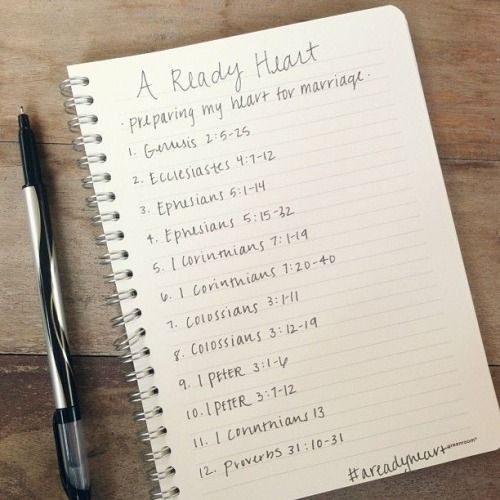 A Ready Heart
· preparing my heart for marriage ·
1. Genesis 2:5-25
2. Ecclesiastes 4:7-12
3. Ephesians 5:1-14
4. Ephesians 5:15-32
5. 1 Corinthians 7:1-19
6. 1 Corinthians 7:20-40
7. Colossians 3:1-11
8. Colossians 3:12-19
9. 1 Peter 3:1-6
10. 1 Peter 3:7-12
11. 1 Corinthians 13
12. Proverbs 31:10-31
greenroom®
#areadyheart